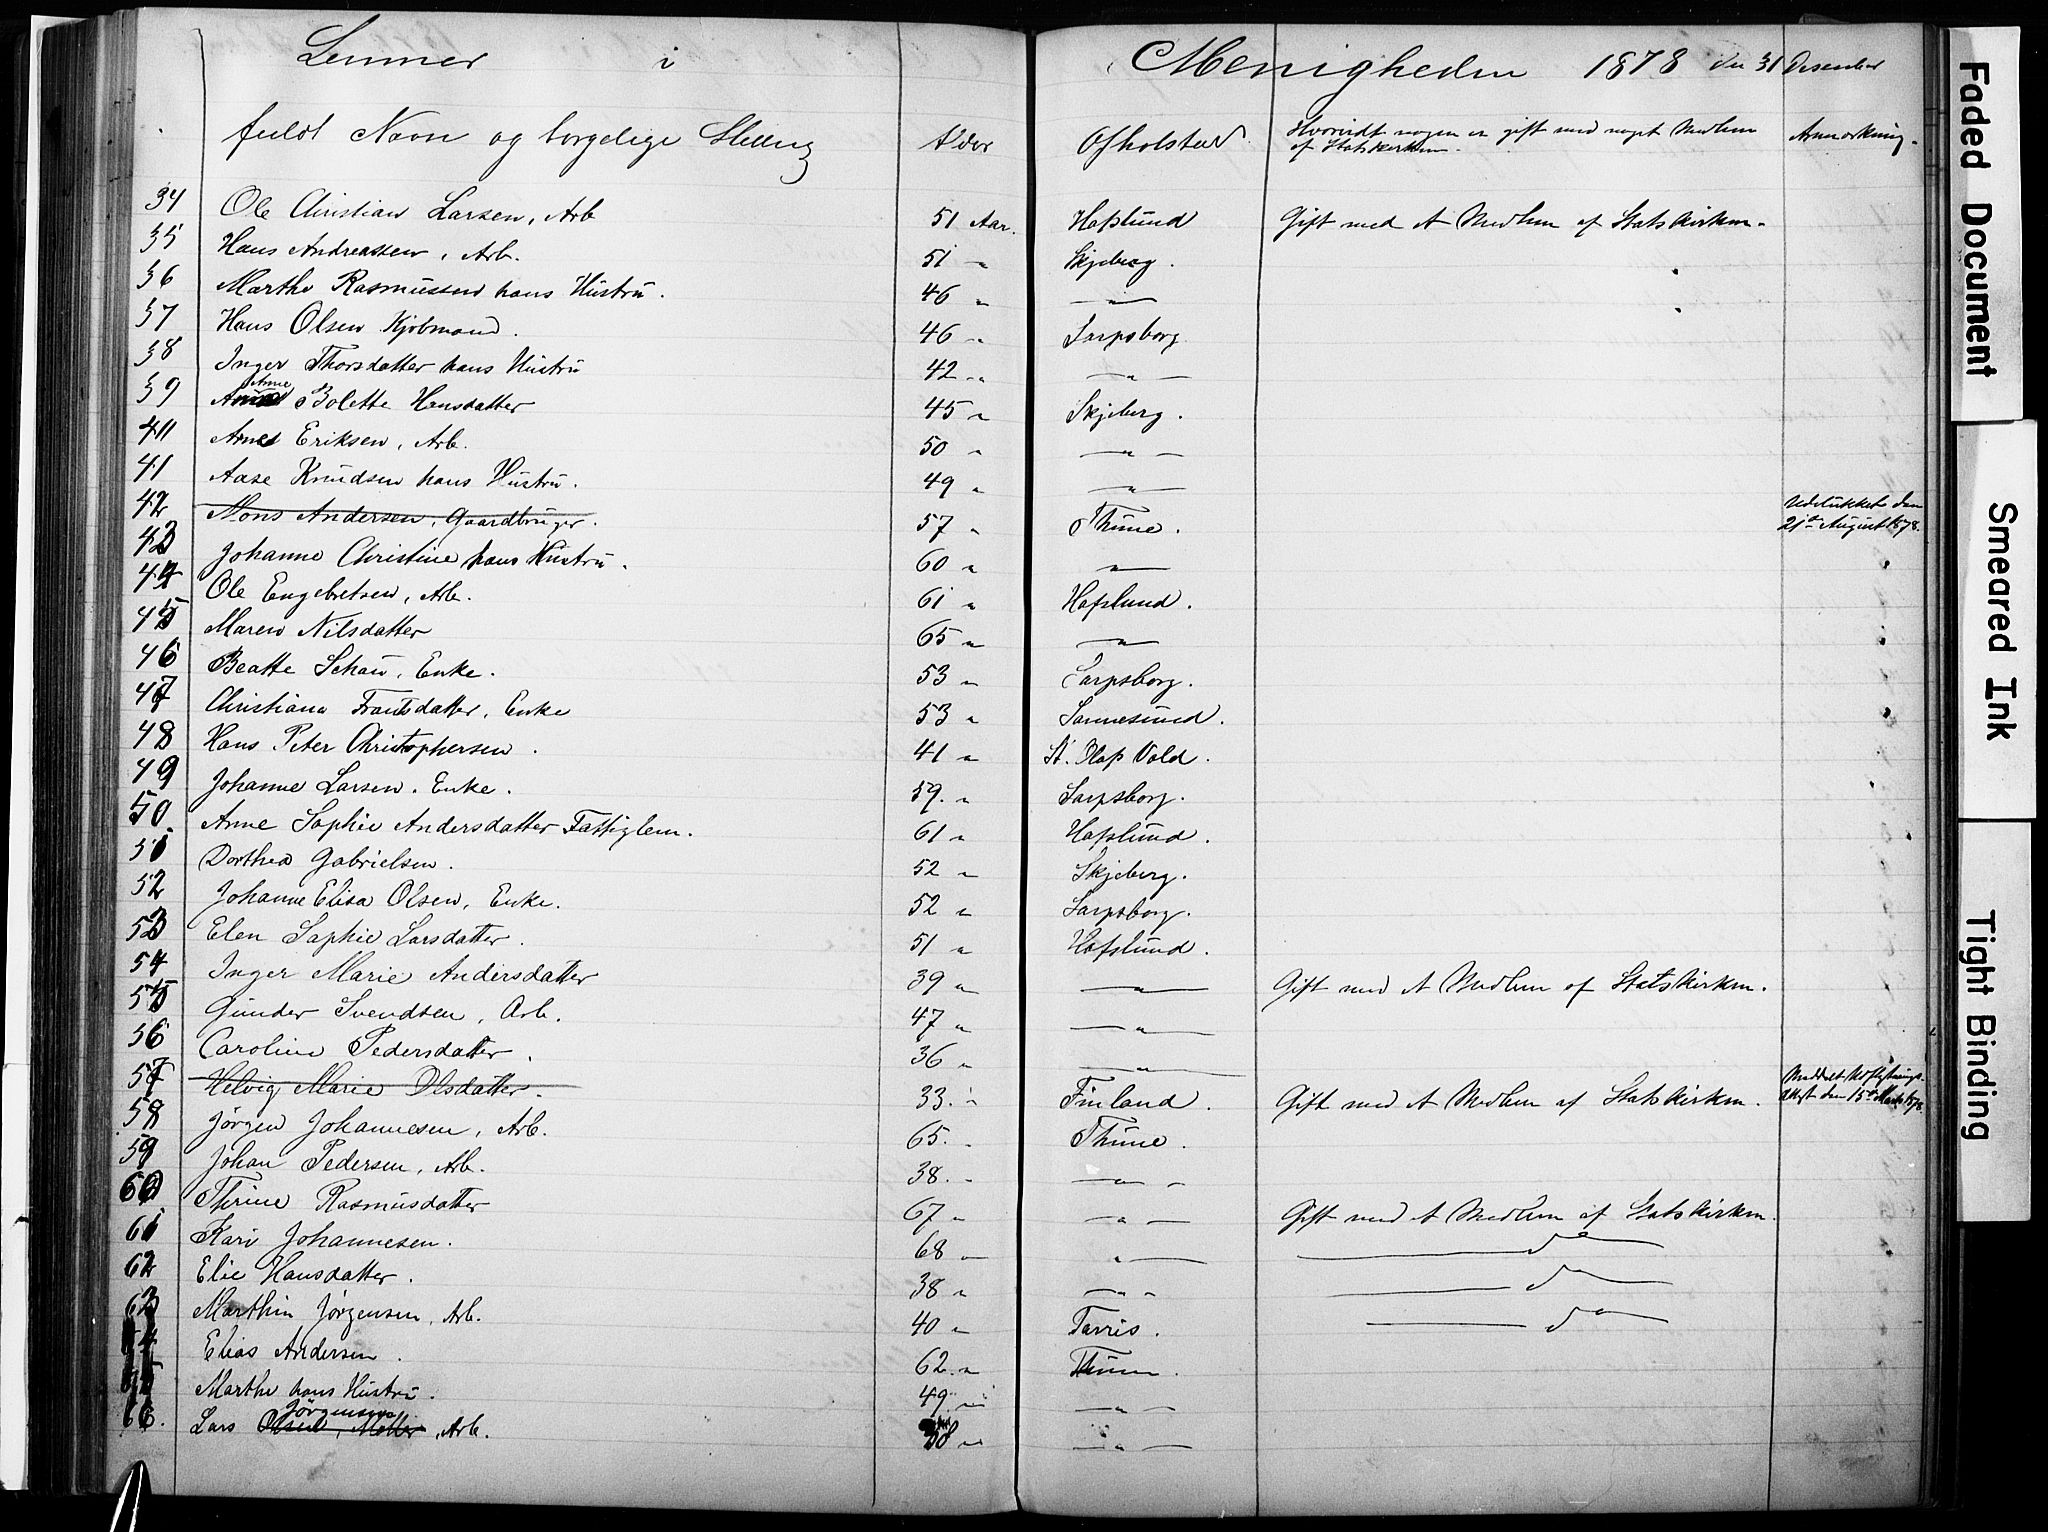 Lemmer i Menigheden 1878 den 31 Desember
fuldt Navn og borgelige Stilling Alder Opholsted Hvorvidt nogen er gift med noget Medlem Anmærkning.
af Statskirken.
34 Ole Christian Larsen, Arb 51 Aar. Hafslund Gift med et Medlem af Statskirken.
35 Hans Andreassen, Arb. 51 " Skjeberg.
36 Marthe Rasmussen hans Hustru. 46 " — " —
37 Hans Olsen Kjøbmand. 46 " Sarpsborg
38 Inger Thorsdatter hans Hustru 42 " — " —
39 Anne Bolette Hansdatter 45 " Skjeberg.
40 Arne Eriksen, Arb. 50 " — " —
41 Aase Knudsen hans Hustru. 49 " — " —
42 Mons Andersen, Gaardbruger. 57 " Thune. Udelukket den
21de August 1878.
43 Johanne Christine hans Hustru. 60 " — " —
44 Ole Engebretsen, Arb. 61 " Hafslund.
45 Maren Nilsdatter 65 " — " —
46 Beatte Schau, Enke. 53 " Sarpsborg.
47 Christiana Frantsdatter, Enke 53 " Sannesund.
48 Hans Peter Christophersen. 41 " St. Olaf Vold.
49 Johanne Larsen. Enke. 59. " Sarpsborg.
50 Anne Sophie Andersdatter Fattiglem. 61 " Hafslund.
51 Dorthea Gabrielsen. 52 " Skjeberg.
52 Johanne Elisa Olsen, Enke. 52 " Sarpsborg.
53 Elen Sophie Larsdatter. 51 " Hafslund.
54 Inger Marie Andersdatter 39 " — " — Gift med et Medlem af Statskirken.
55 Gunder Svendsen, Arb. 47 " — " —
56 Caroline Pedersdatter. 36 " — " —
57 Helvig Marie Olsdatter. 33. " Finland. Gift med et Medlem af Statskirken. Meddelt Udflytnings-
attest den 15de Marts 1878
58 Jørgen Johannesen, Arb. 65. " Thune.
59 Johan Pedersen, Arb. 38. " — " —
60 Thrine Rasmusdatter 67 " — " — Gift med et Medlem af Statskirken.
61 Kari Johannesen. 68 " — " — — do —
62 Elie Hansdatter. 38 " — " — — do —
63 Marthin Jørgensen, Arb. 40 " Tarris. — do —
64 Elias Andersen. 62. " Thune.
65 Marthe hans Hustru. 49. " — " —
66. Lars Jørgensen, Arb. 38 " — " —
Faded Document
Smeared Ink
Tight Binding